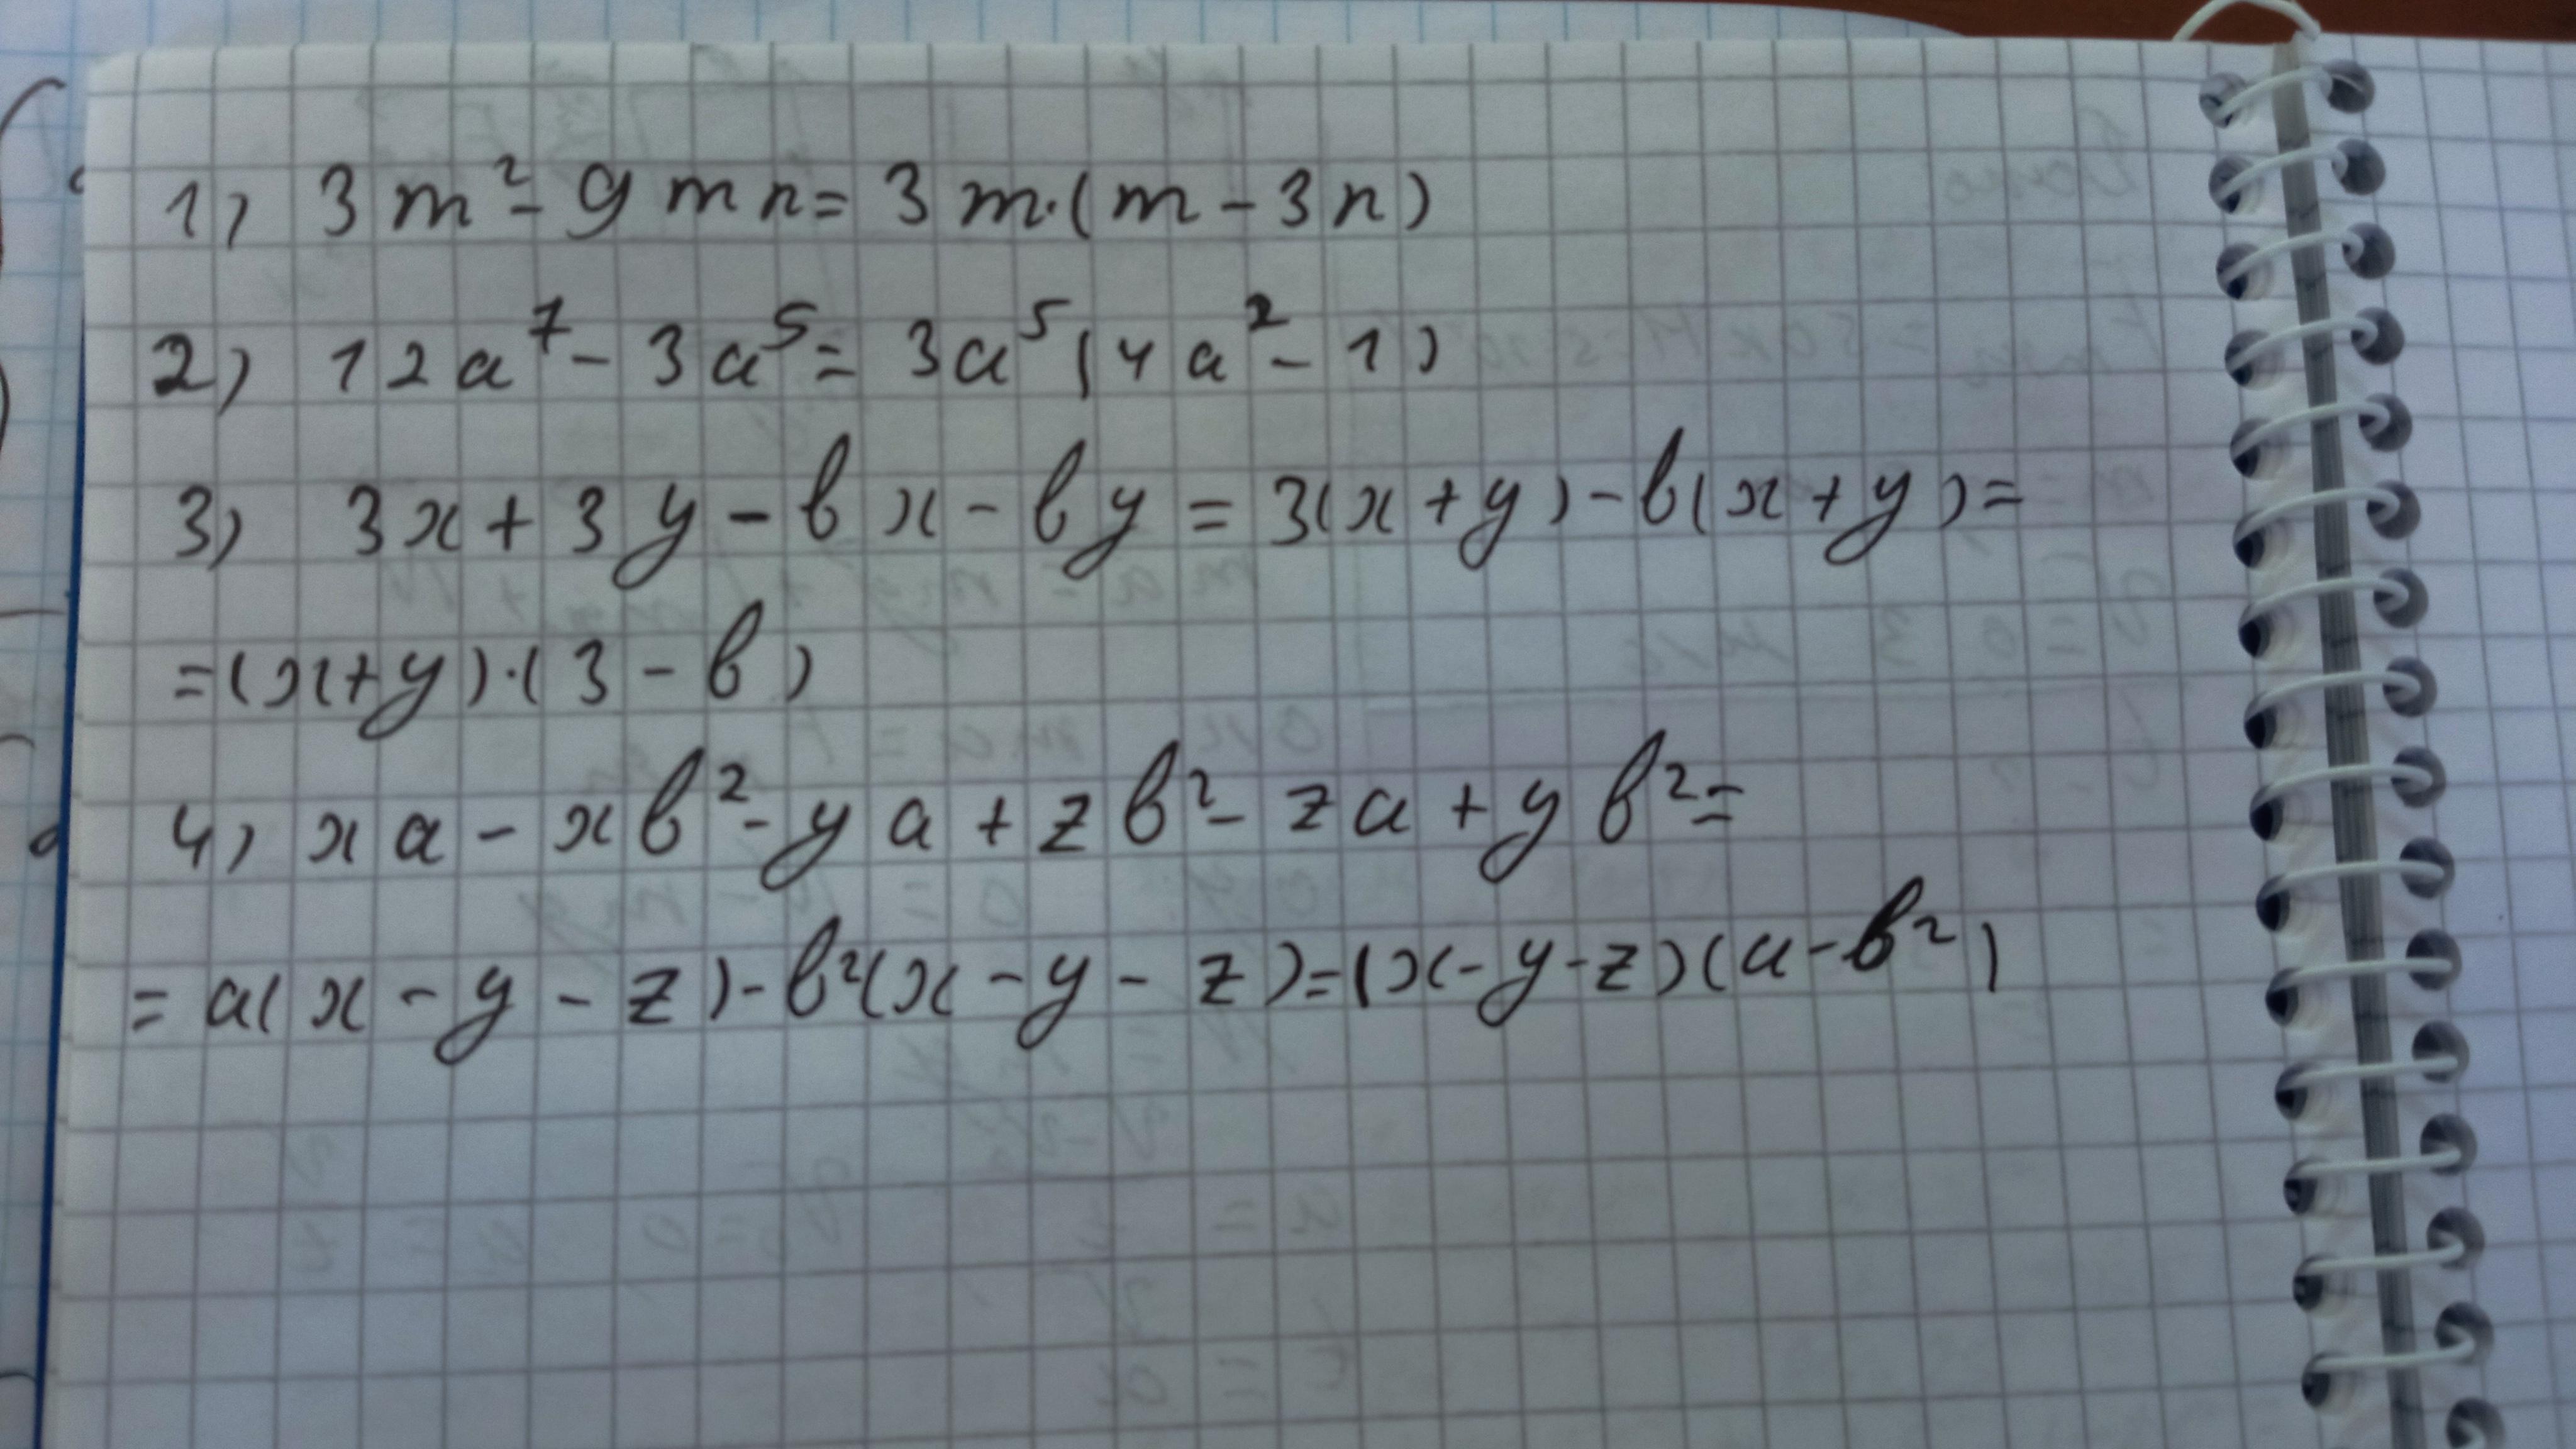 1) 3m² - 9mn = 3m·(m - 3n)
2) 12a⁷ - 3a⁵ = 3a⁵(4a² - 1)
3) 3x + 3y - bx - by = 3(x + y) - b(x + y) =
= (x + y)·(3 - b)
4) xa - xb² - ya + zb² - za + yb² =
= a(x - y - z) - b²(x - y - z) = (x - y - z)(a - b²)